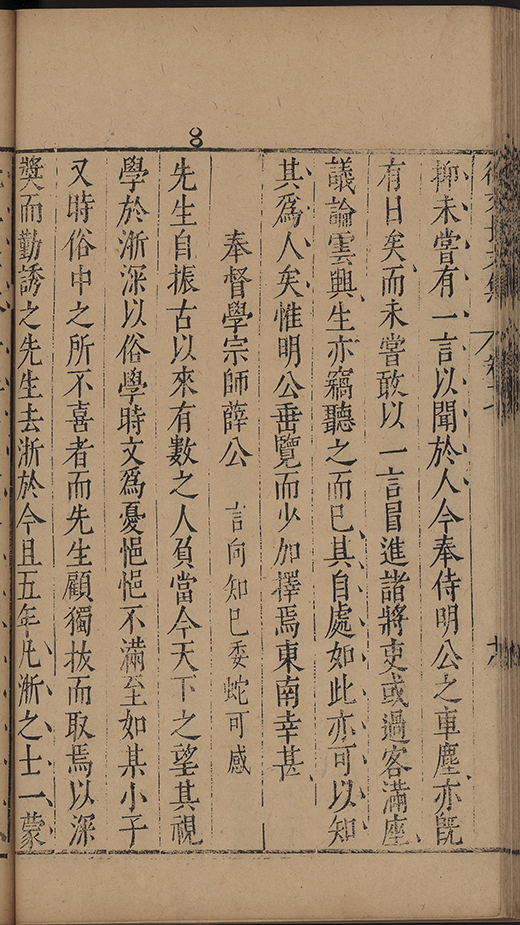 抑未嘗有一言以聞於人今奉侍明公之車塵亦旣
有日矣而未嘗敢以一言冒進諸將吏或過客滿座
議論雲興生亦竊聽之而已其自處如此亦可以知
其爲人矣惟明公垂覽而少加擇焉東南幸甚
奉督學宗師薛公 言向知已委蛇可感
先生自振古以來有數之人負當今天下之望其視
學於浙深以俗學時文爲憂悒悒不滿至如某小子
又時俗中之所不喜者而先生顧獨拔而取焉以深
奬而勤誘之先生去浙於今且五年凡浙之士一蒙
8